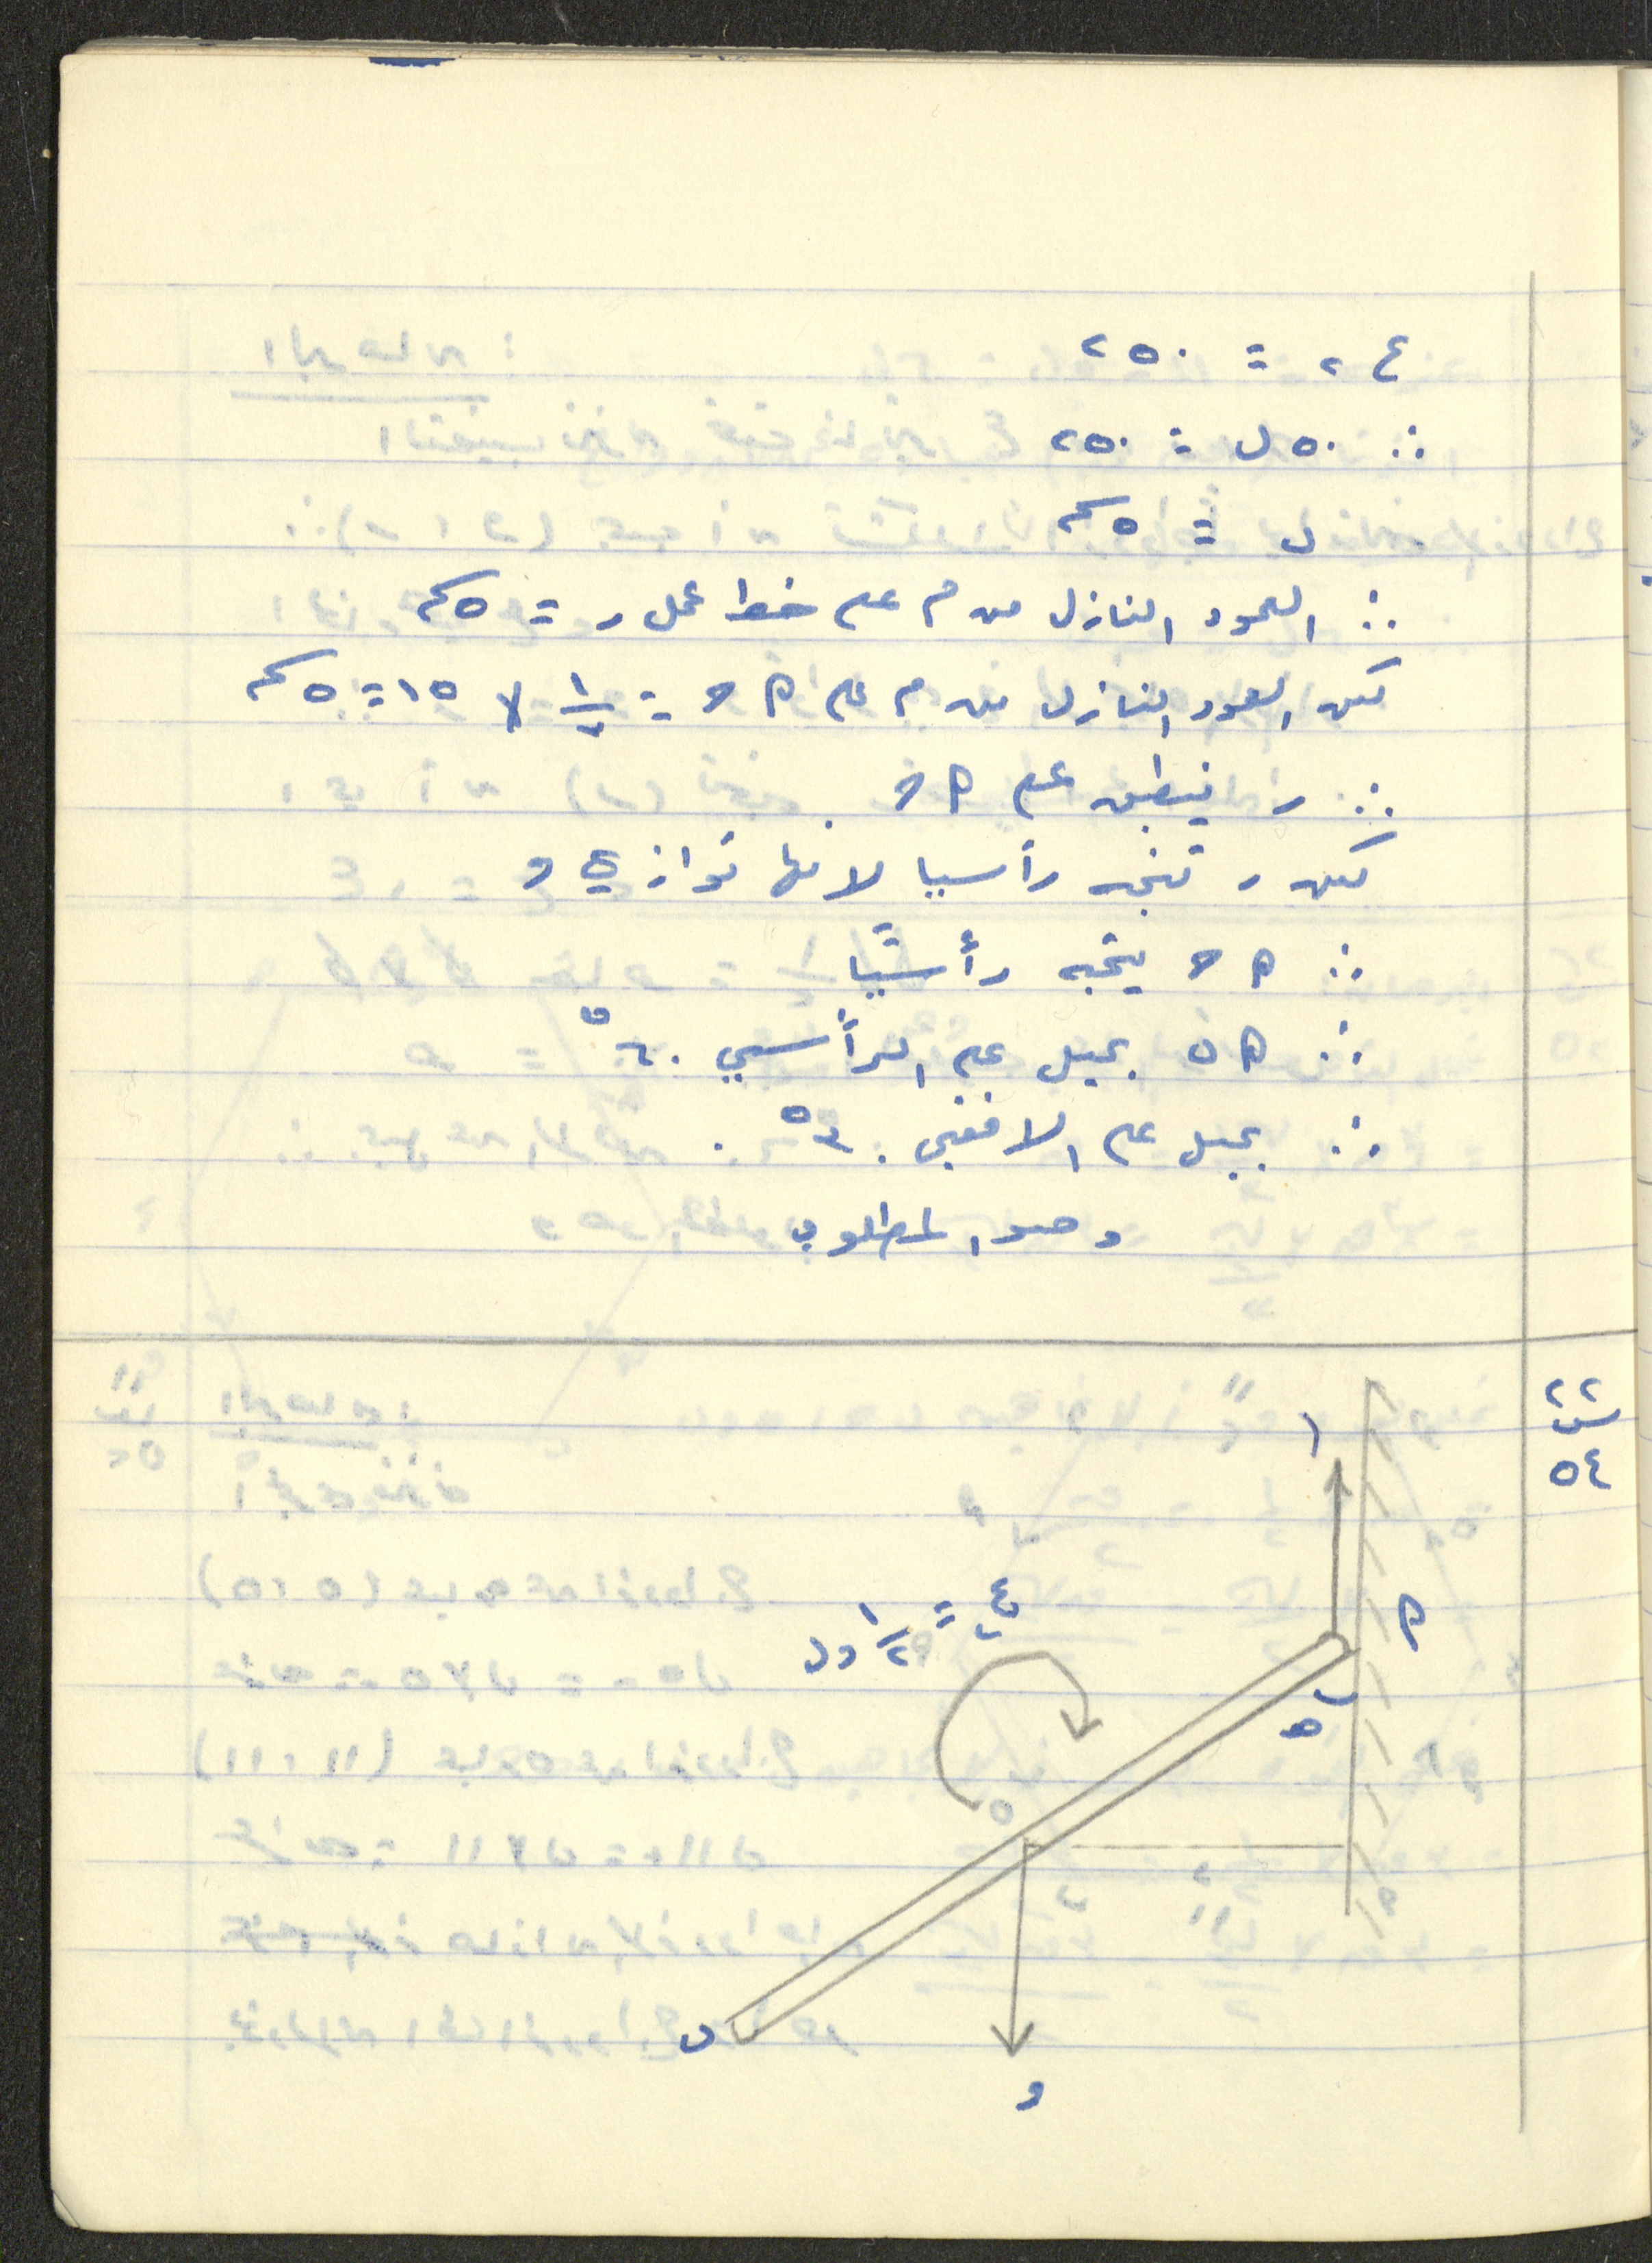 ع٢ = ٢٥٠
∴ ٥٠ ل = ٢٥٠
ل = ٥ سم
∴ العمود النازل من م على خط عمل ر = ٥ سم
لكن العمود النازل من م على P ح = ١/٣ × ١٥ = ٥ سم
∴ ر ينطبق على P ح
لكن ر تتجه رأسيا لانها توازي و
∴ P ح يتجه رأسيًا
∴ P ن يميل على الرأسي ٦٠°
∴ يميل على الافقي ٣٠°.
وهو المطلوب
٢٢
ص
٥٤
ر
ع٢ = ١/٢ و ل
P
ب
هـ
ن
و